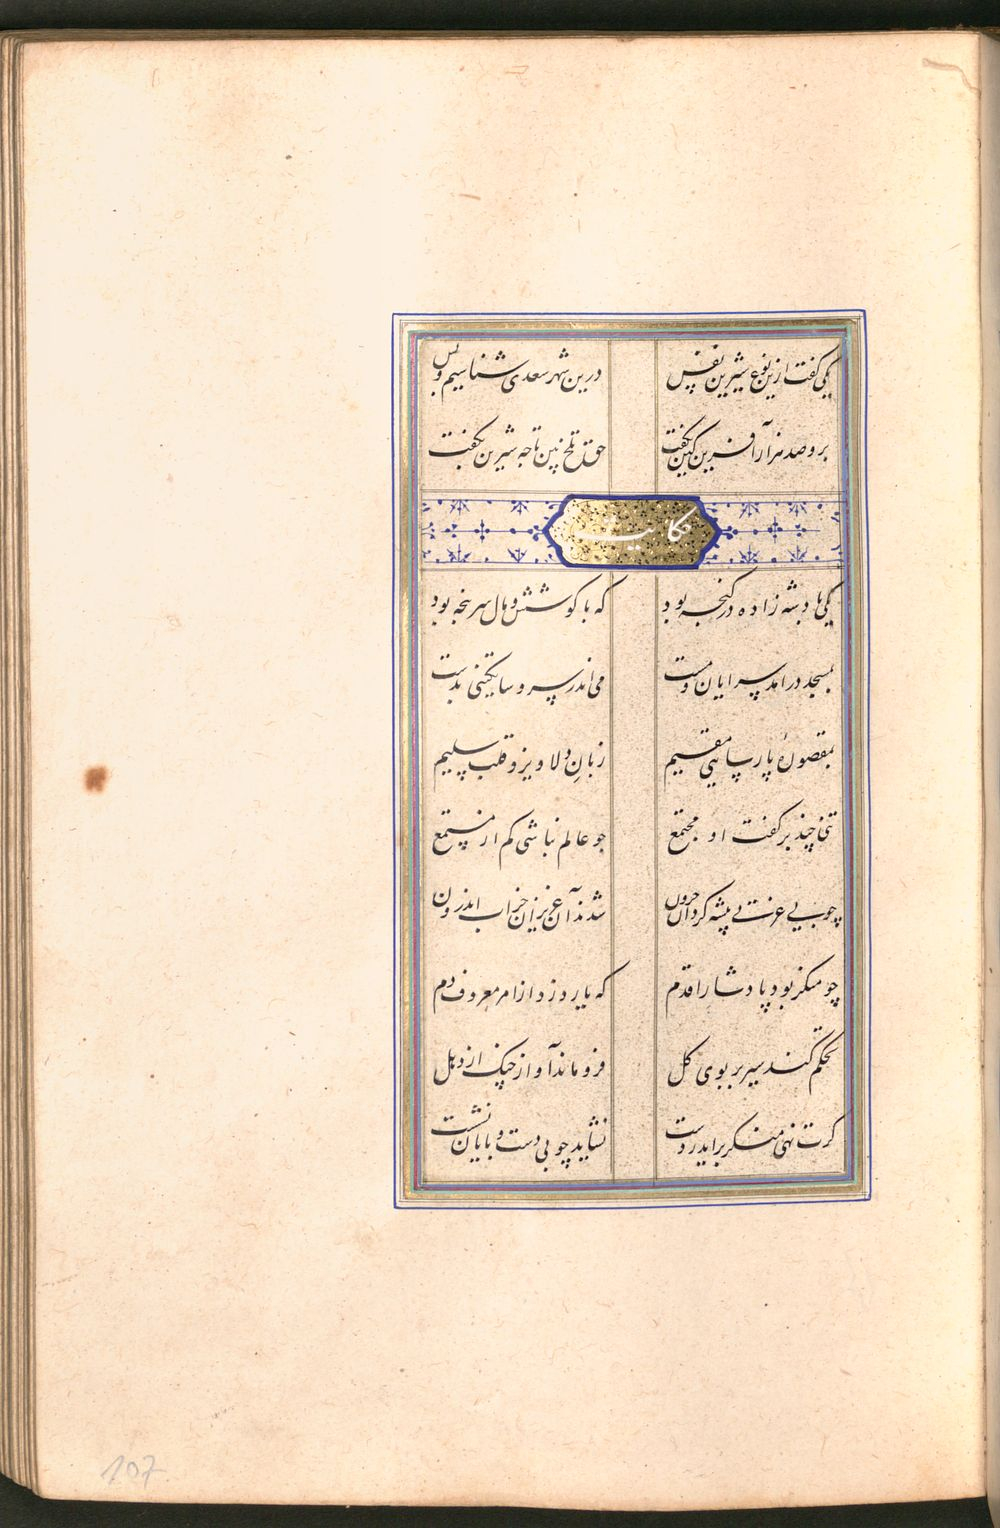 یکی گفت ازین نوع شیرین نفس
درین شهر سعدی شناسیم و بس
برو صد هزار آفرین کین بگفت
حق تلخ بین تا چه شیرین بگفت
حکایت
یکی پادشه زاده در گنجه بود
که با کوشش و مال سرپنجه بود
بمسجد درآمد سرایان و مست
می اندر سر و ساتگینی بدست
بمقصوره پارسایی مقیم
زبان دلاویز و قلب سلیم
تنی چند بر گفت او مجتمع
چو عالم نباشی کم از مستمع
چو بی عزتی پیشه کرد آن حرون
شدند آن عزیزان خراب اندرون
چو منکر بود پادشا را قدم
که یارد زد از امر معروف دم
تحکم کند سیر بر بوی گل
فرو ماند آواز چنگ از دهل
گرت نهی منکر برآید ز دست
نشاید چو بی دست و پایان نشست
107